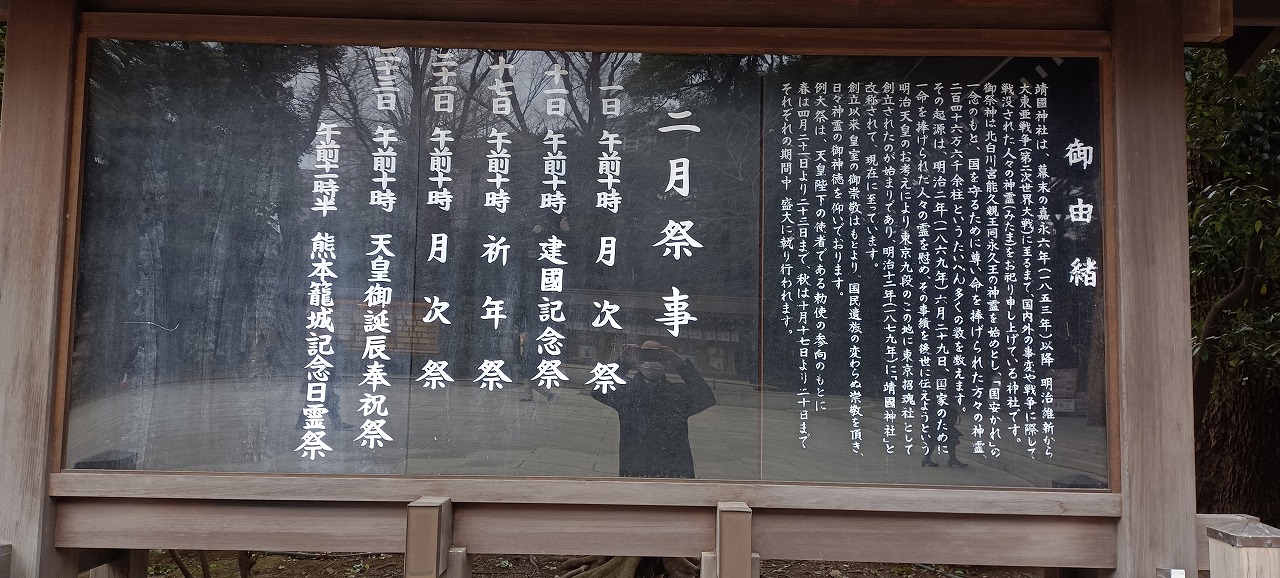 御由緒
靖國神社は、幕末の嘉永六年(一八五三年)以降、明治維新から
大東亜戦争(第二次世界大戦)に至るまで、国内外の事変や戦争に際して、
戦没された人々の神霊(みたま)をお祀り申し上げている神社です。
御祭神は北白川宮能久親王同永久王の神霊を始めとし、「国安かれ」の
一念のもと、国を守るために尊い命を捧げられた方々の神霊、
二百四十六万六千余柱というたいへん多くの数を数えます。
その起源は、明治二年(一八六九年)六月二十九日、国家のために
一命を捧げられた人々の霊を慰め、その事績を後世に伝えようという
明治天皇のお考えにより東京九段のこの地に東京招魂社として
創立されたのが始まりであり、明治十二年(一八七九年)に「靖國神社」と
改称されて、現在に至っています。
創立以来皇室の御崇敬はもとより、国民遺族の変わらぬ崇敬を頂き、
日々神霊の御神徳を仰いでおります。
例大祭は、天皇陛下の使者である勅使の参向のもとに
春は四月二十一日より二十三日まで、秋は十月十七日より二十日まで
それぞれの期間中 盛大に執り行われます。
二月祭事
一日 午前十時 月次祭
十一日 午前十時 建國記念祭
十七日 午前十時 祈年祭
二十一日 午前十時 月次祭
二十三日 午前十時 天皇御誕辰奉祝祭
午前十一時半 熊本籠城記念日霊祭